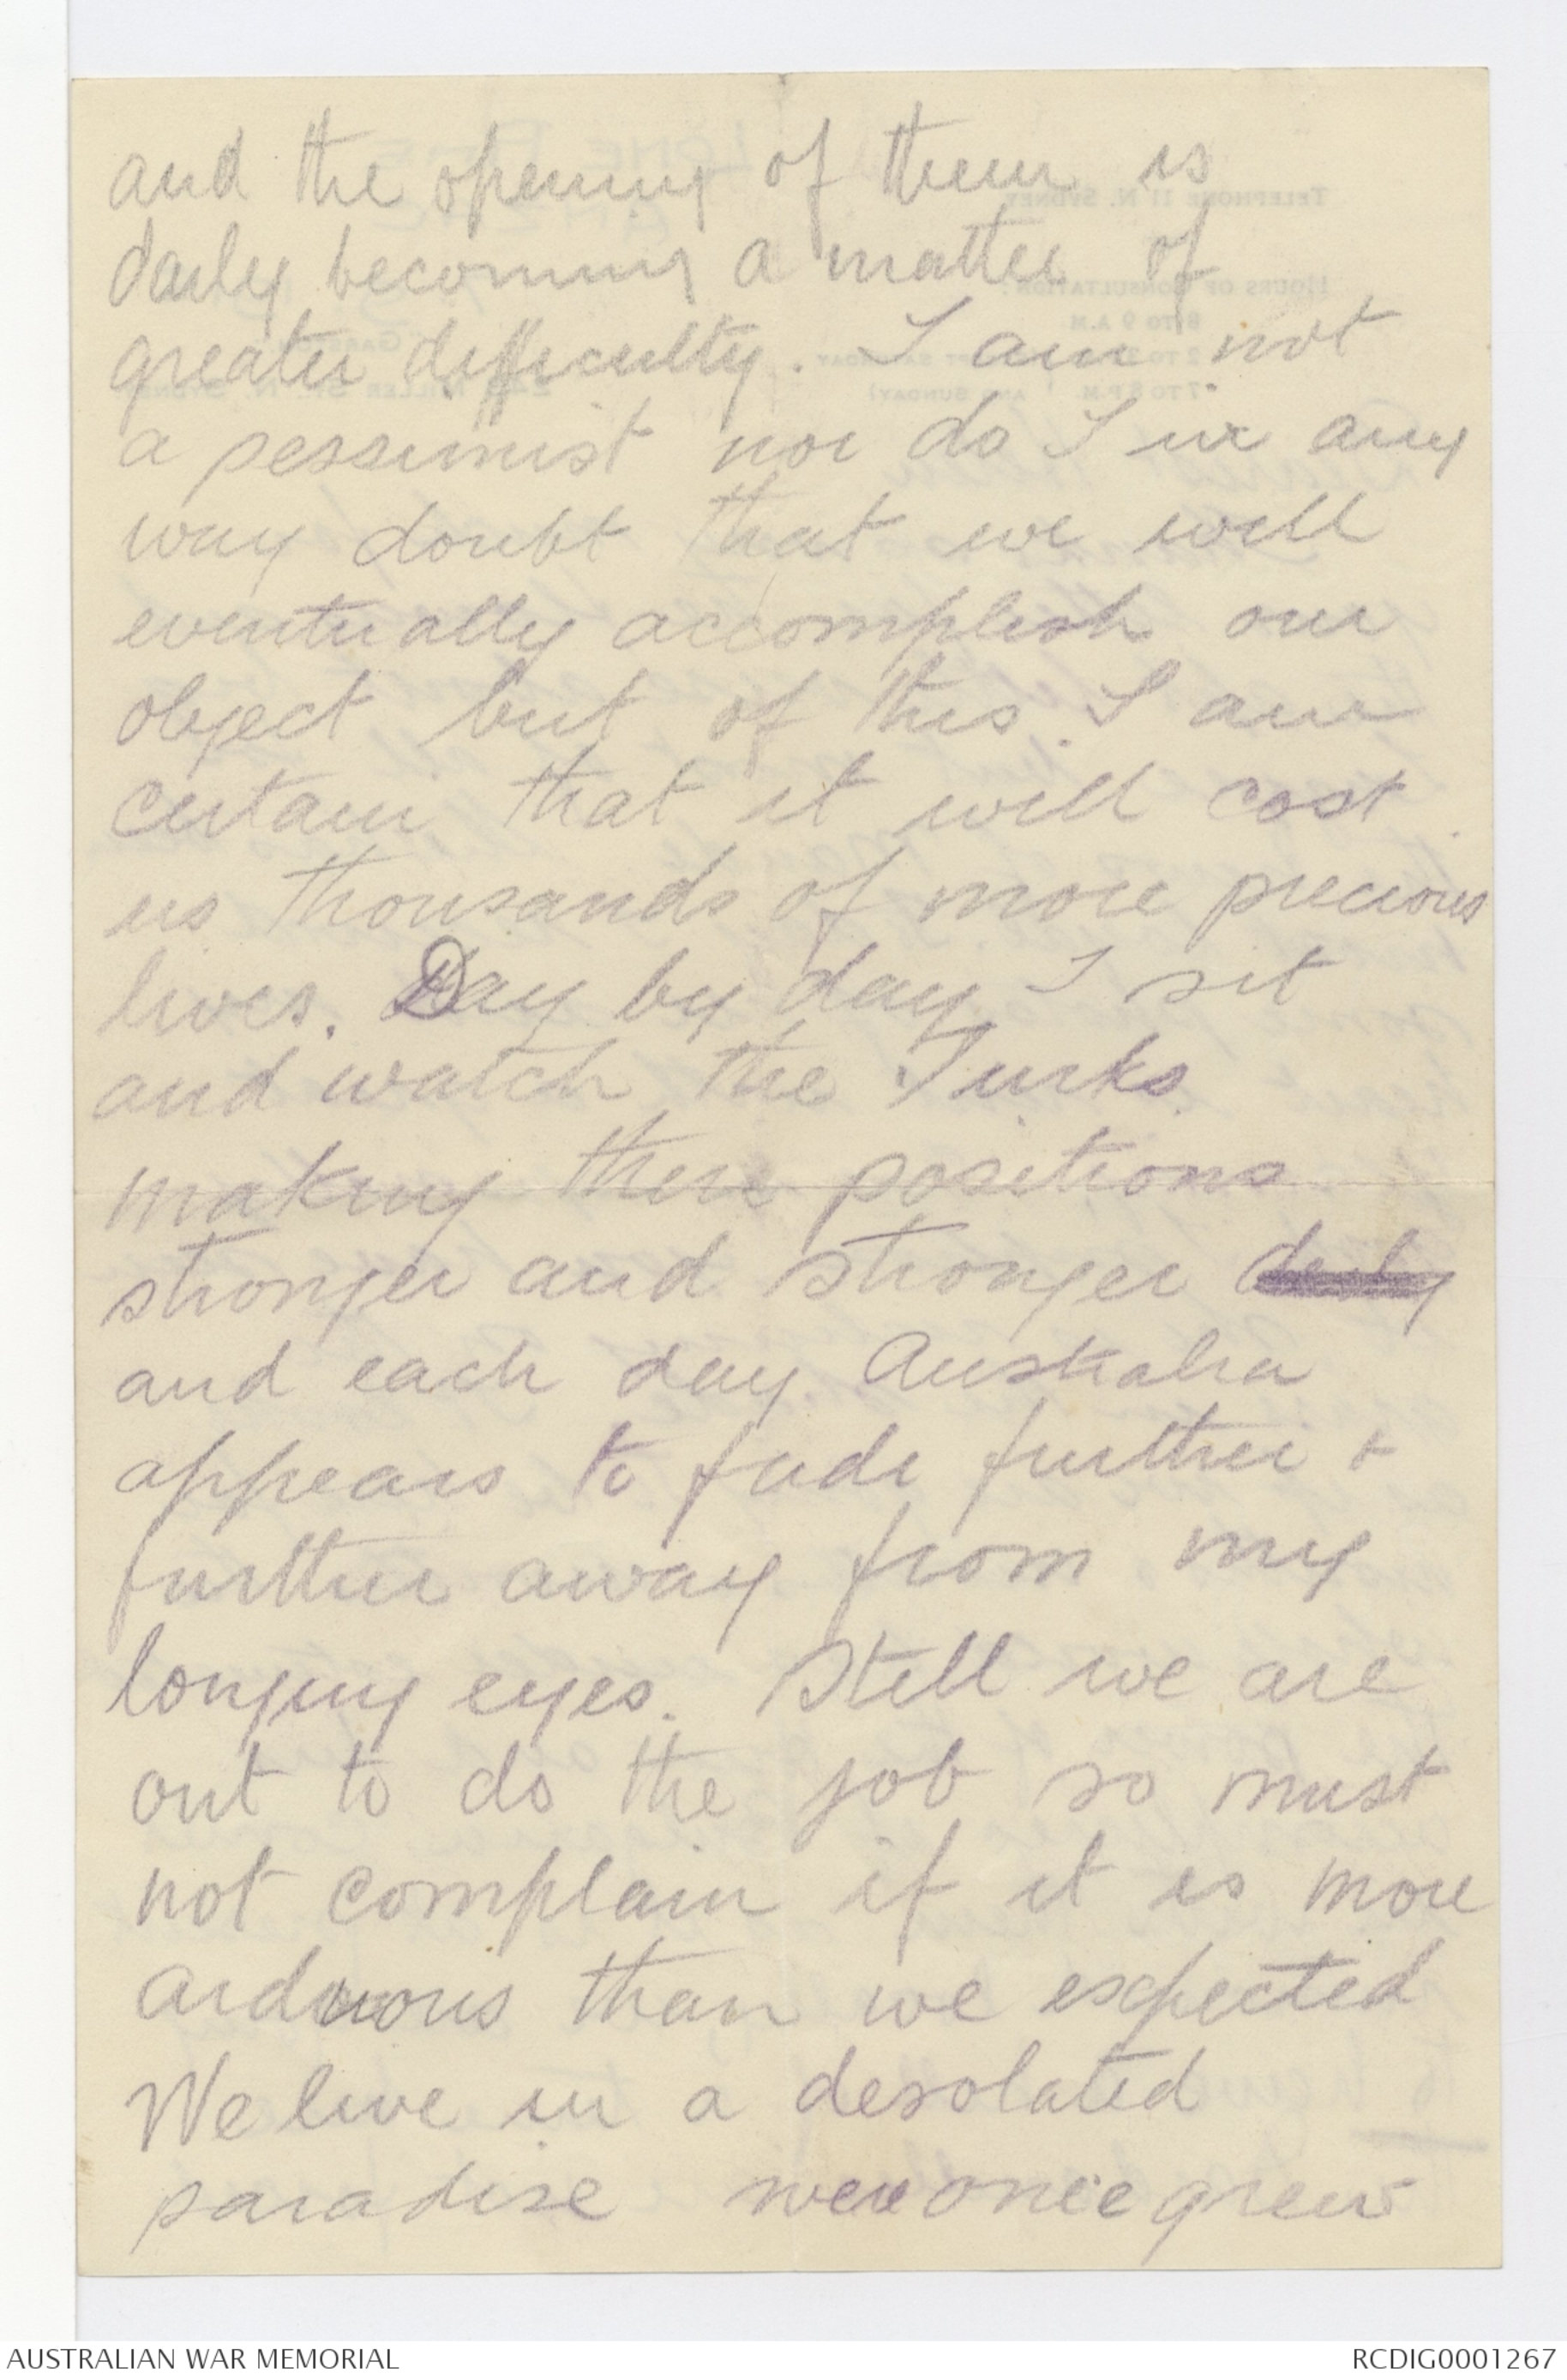 and the opening of them is
daily becoming a matter of
greater difficulty. I am not
a pessimist nor do I in any
way doubt that we will
eventually accomplish our
object but of this I am
certain that it will cost
us thousands of more precious
lives. Day by day I sit
and watch the Turks
making there positions
stronger and stronger daily
and each day Australia
appears to fade further +
further away from my
longing eyes. Still we are
out to do the job so must
not complain if it is more
arduous than we expected
We live in a desolated
paradise were once grew
AUSTRALIAN WAR MEMORIAL
RCDIG0001267